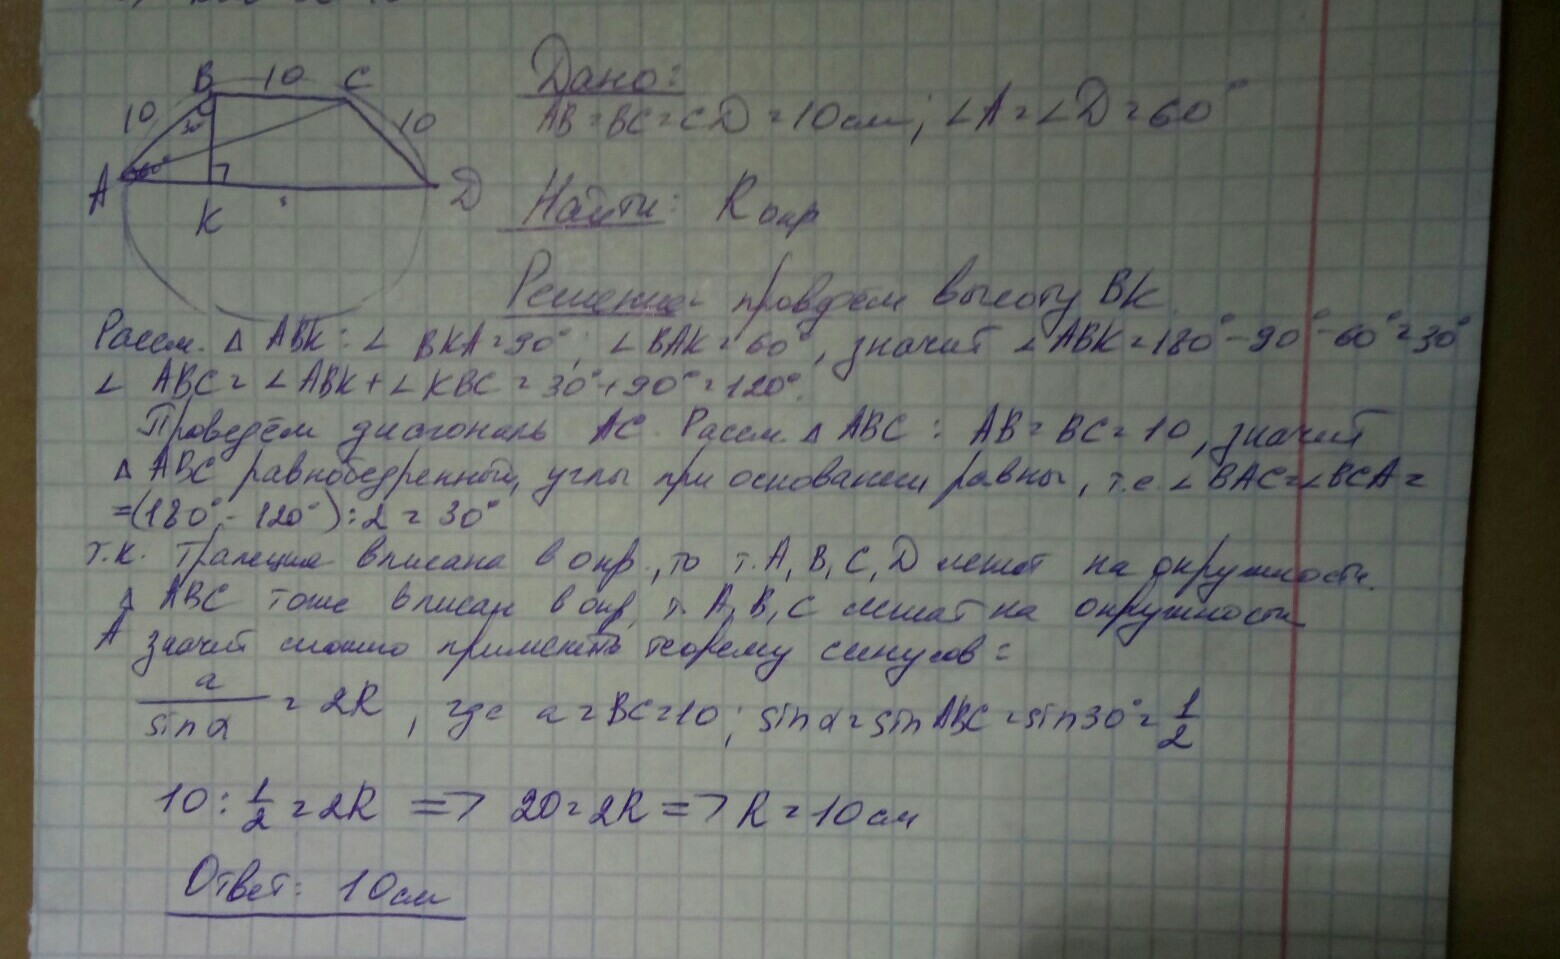 B 10 C
10 30° 10
A 60° D
K
Дано:
AB = BC = CD = 10 см; ∠A = ∠D = 60°
Найти: R окр
Решение: провдём высоту BK
Рассм. Δ ABK: ∠ BKA = 90°; ∠ BAK = 60°, значит ∠ ABK = 180° - 90° - 60° = 30°
∠ ABC = ∠ ABK + ∠ KBC = 30° + 90° = 120°.
Проведём диагональ AC. Рассм. Δ ABC: AB = BC = 10, значит
Δ ABC равнобедренный, углы при основании равны, т.е. ∠ BAC = ∠ BCA =
= (180° - 120°) : 2 = 30°
т.к. трапеция вписана в окр., то т. A, B, C, D лежат на окружности.
Δ ABC тоже вписан в окр, т. A, B, C лежат на окружности
А значит можно применить теорему синусов:
a / sin α = 2R, где a = BC = 10; sin α = sin ABC = sin 30° = 1/2
10 : 1/2 = 2R => 20 = 2R => R = 10 см
Ответ: 10 см